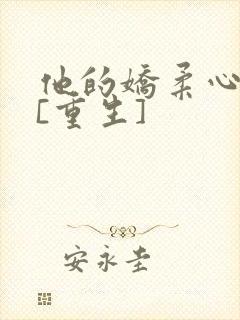 他的嬌柔心
[重生]
安永圭